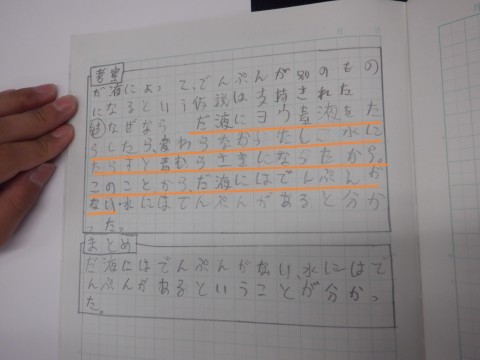 考察
だ液によって、でんぷんが別のもの
になるという仮説は支持された
なぜなら だ液にヨウ素液をた
らしたら、変わらなかったし、水に
たらすと青むらさきになったから。
このことから、だ液にはでんぷんが
ない水にはでんぷんがあると分か
った。
まとめ
だ液にはでんぷんがない、水にはで
んぷんがあるということが分かっ
た。